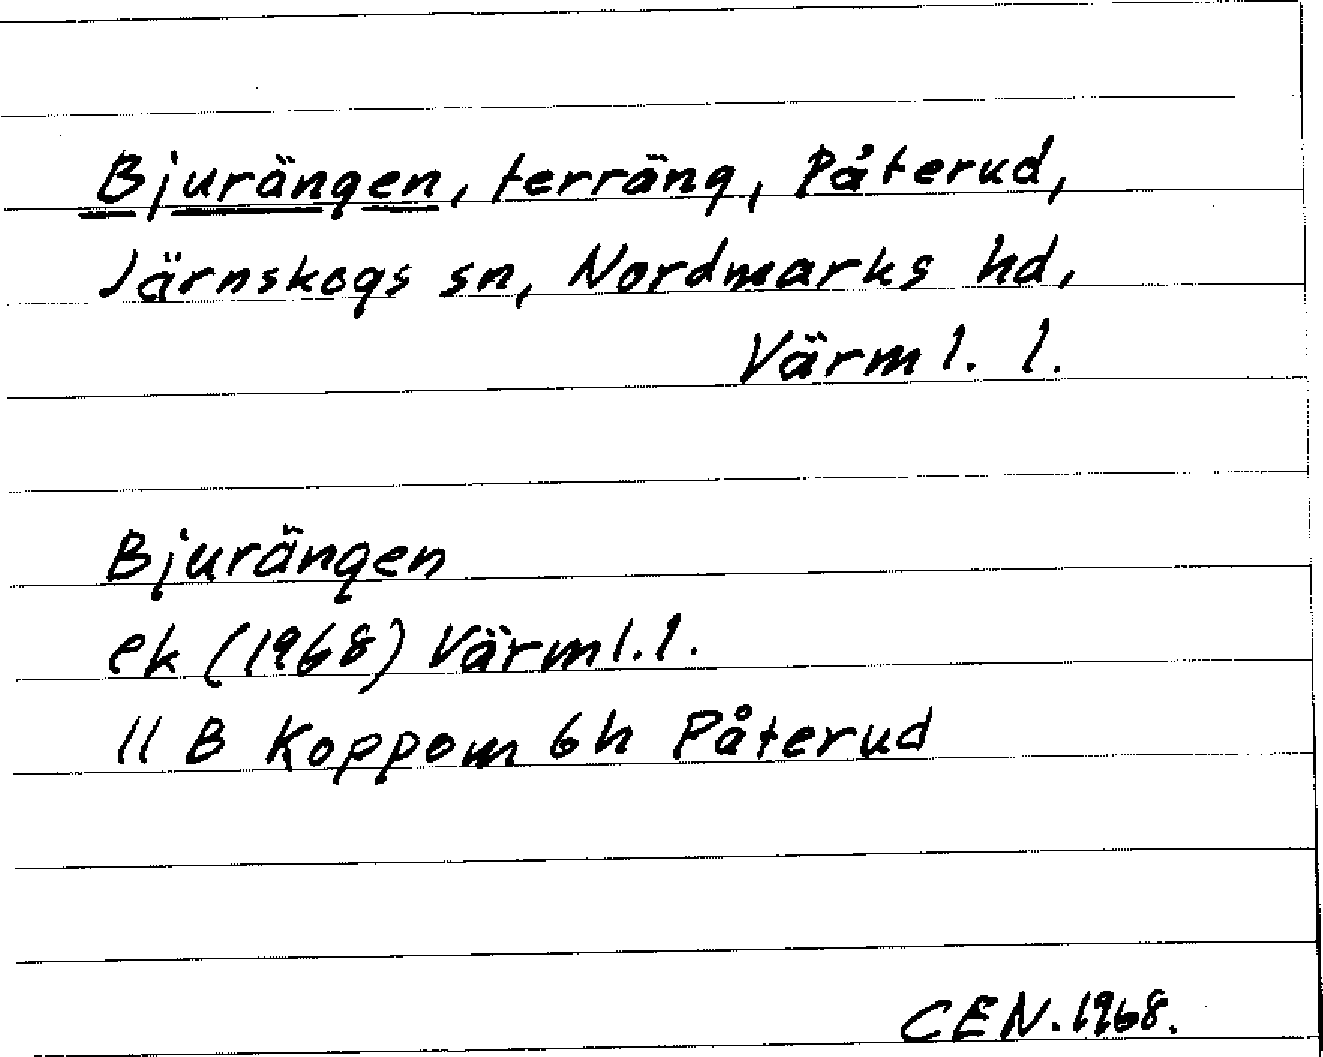 Bjurängen, terräng, Påterud,
Järnskogs sn, Nordmarks hd,
Värml. l.
Bjurängen
ek (1968) Värml.l.
11 B Koppom 6h Påterud
CEN.1968.